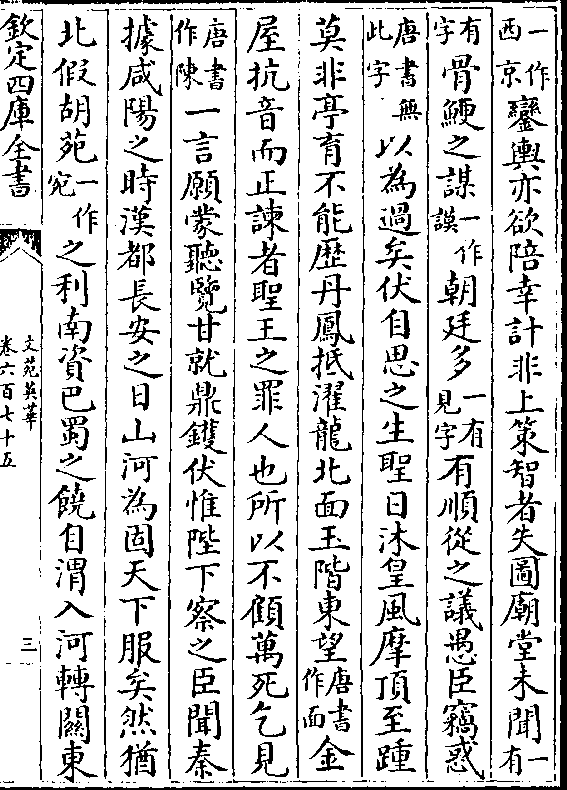 一作西京鑾輿亦欲陪幸計非上策智者失圖廟堂未聞一有
有字骨鯁之謀一作謨朝廷多一有見字有順從之議愚臣竊惑
唐書無此字以為過矣伏自思之生聖日沐皇風摩頂至踵
莫非亭育不能歴丹鳳抵濯龍北面玉階東望唐書作面金
屋抗音而正諫者聖王之罪人也所以不顧萬死乞見
唐書作陳一言願蒙聽覽甘就鼎鑊伏惟陛下察之臣聞秦
據咸陽之時漢都長安之日山河為固天下服矣然猶
北假胡苑一作宛之利南資巴蜀之饒自渭入河轉關東
欽定四庫全書
文苑英華
卷六百七十五
三